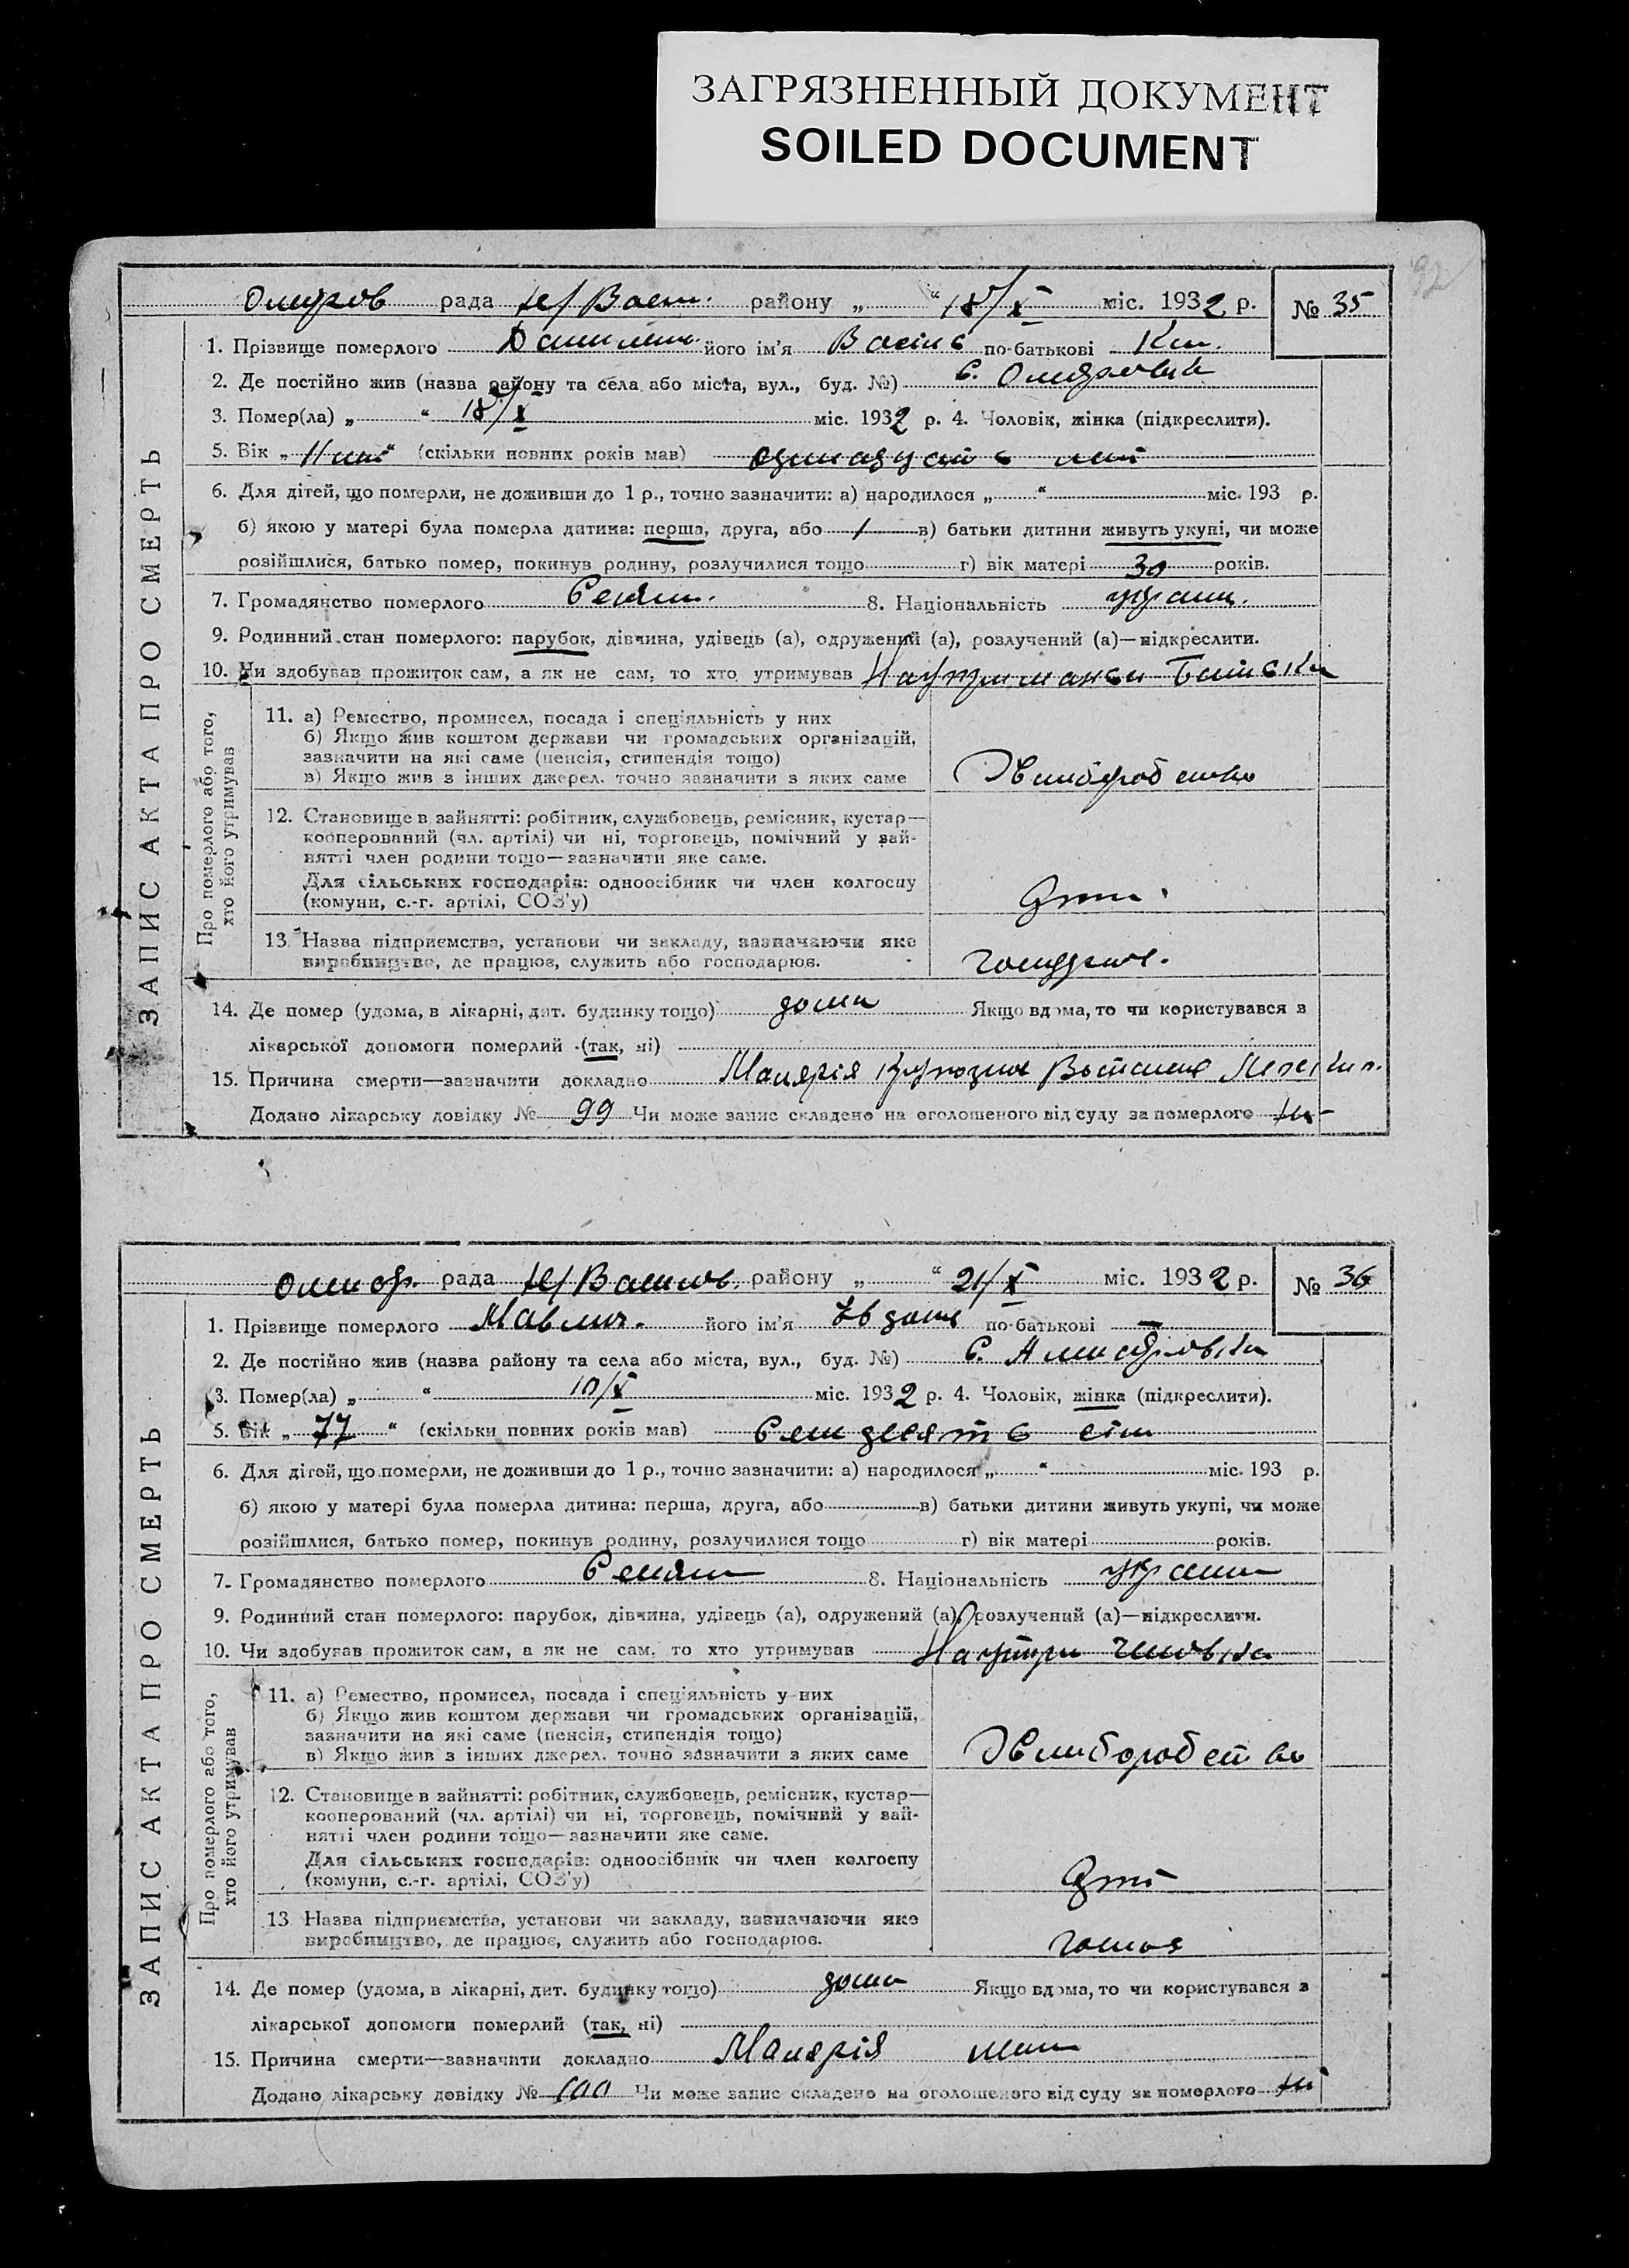 ЗАГРЯЗНЕННЫЙ ДОКУМЕНТ
SOILED DOCUMENT
92
ЗАПИС АКТА ПРО СМЕРТЬ
рада району „ “ 18/X міс. 1932 р. № 35
1. Прізвище померлого його ім'я по-батькові
2. Де постійно жив (назва району та села або міста, вул., буд. №) с.
3. Помер(ла) „ “ 18/X міс. 1932 р. 4. Чоловік, жінка (підкреслити).
5. Вік „ “ (скільки повних років мав)
6. Для дітей, що померли, не доживши до 1 р., точно зазначити: а) народилося „ “ міс. 193 р.
б) якою у матері була померла дитина: перша, друга, або / в) батьки дитини живуть укупі, чи може
розійшлися, батько помер, покинув родину, розлучилися тощо г) вік матері 30 років.
7. Громадянство померлого Селян. 8. Національність україн.
9. Родинний стан померлого: парубок, дівчина, удівець (а), одружений (а), розлучений (а)—підкреслити.
10. Чи здобував прожиток сам, а як не сам, то хто утримував
Про померлого або того, хто його утримував
11. а) Ремество, промисел, посада і спеціяльність у них
б) Якщо жив коштом держави чи громадських організацій,
зазначити на які саме (пенсія, стипендія тощо)
в) Якщо жив з інших джерел, точно зазначити з яких саме
Хліборобство
12. Становище в зайнятті: робітник, службовець, ремісник, кустар—
кооперований (чл. артілі) чи ні, торговець, помічний у зай-
нятті член родини тощо—зазначити яке саме.
Для сільських господарів: одноосібник чи член колгоспу
(комуни, с.-г. артілі, СОЗ'у)
13. Назва підприємства, установи чи закладу, зазначаючи яке
виробництво, де працює, служить або господарює.
14. Де помер (удома, в лікарні, дит. будинку тощо) дома Якщо вдома, то чи користувався з
лікарської допомоги померлий (так, ні)
15. Причина смерти—зазначити докладно Малярія
Додано лікарську довідку № 99 Чи може запис складено на оголошеного від суду за померлого ні
ЗАПИС АКТА ПРО СМЕРТЬ
рада району „ “ 21/X міс. 1932 р. № 36
1. Прізвище померлого його ім'я по-батькові —
2. Де постійно жив (назва району та села або міста, вул., буд. №) с.
3. Помер(ла) „ “ 10/X міс. 1932 р. 4. Чоловік, жінка (підкреслити).
5. Вік „ 77 “ (скільки повних років мав) Семдесять сім
6. Для дітей, що померли, не доживши до 1 р., точно зазначити: а) народилося „ “ міс. 193 р.
б) якою у матері була померла дитина: перша, друга, або в) батьки дитини живуть укупі, чи може
розійшлися, батько помер, покинув родину, розлучилися тощо г) вік матері років.
7. Громадянство померлого Селян 8. Національність україн
9. Родинний стан померлого: парубок, дівчина, удівець (а), одружений (а), розлучений (а)—підкреслити.
10. Чи здобував прожиток сам, а як не сам, то хто утримував
Про померлого або того, хто його утримував
11. а) Ремество, промисел, посада і спеціяльність у них
б) Якщо жив коштом держави чи громадських організацій,
зазначити на які саме (пенсія, стипендія тощо)
в) Якщо жив з інших джерел, точно зазначити з яких саме
Хліборобство
12. Становище в зайнятті: робітник, службовець, ремісник, кустар—
кооперований (чл. артілі) чи ні, торговець, помічний у зай-
нятті член родини тощо—зазначити яке саме.
Для сільських господарів: одноосібник чи член колгоспу
(комуни, с.-г. артілі, СОЗ'у)
13 Назва підприємства, установи чи закладу, зазначаючи яке
виробництво, де працює, служить або господарює.
14. Де помер (удома, в лікарні, дит. будинку тощо) дома Якщо вдома, то чи користувався з
лікарської допомоги померлий (так, ні)
15. Причина смерти—зазначити докладно Малярія
Додано лікарську довідку № 100 Чи може запис складено на оголошеного від суду за померлого ні